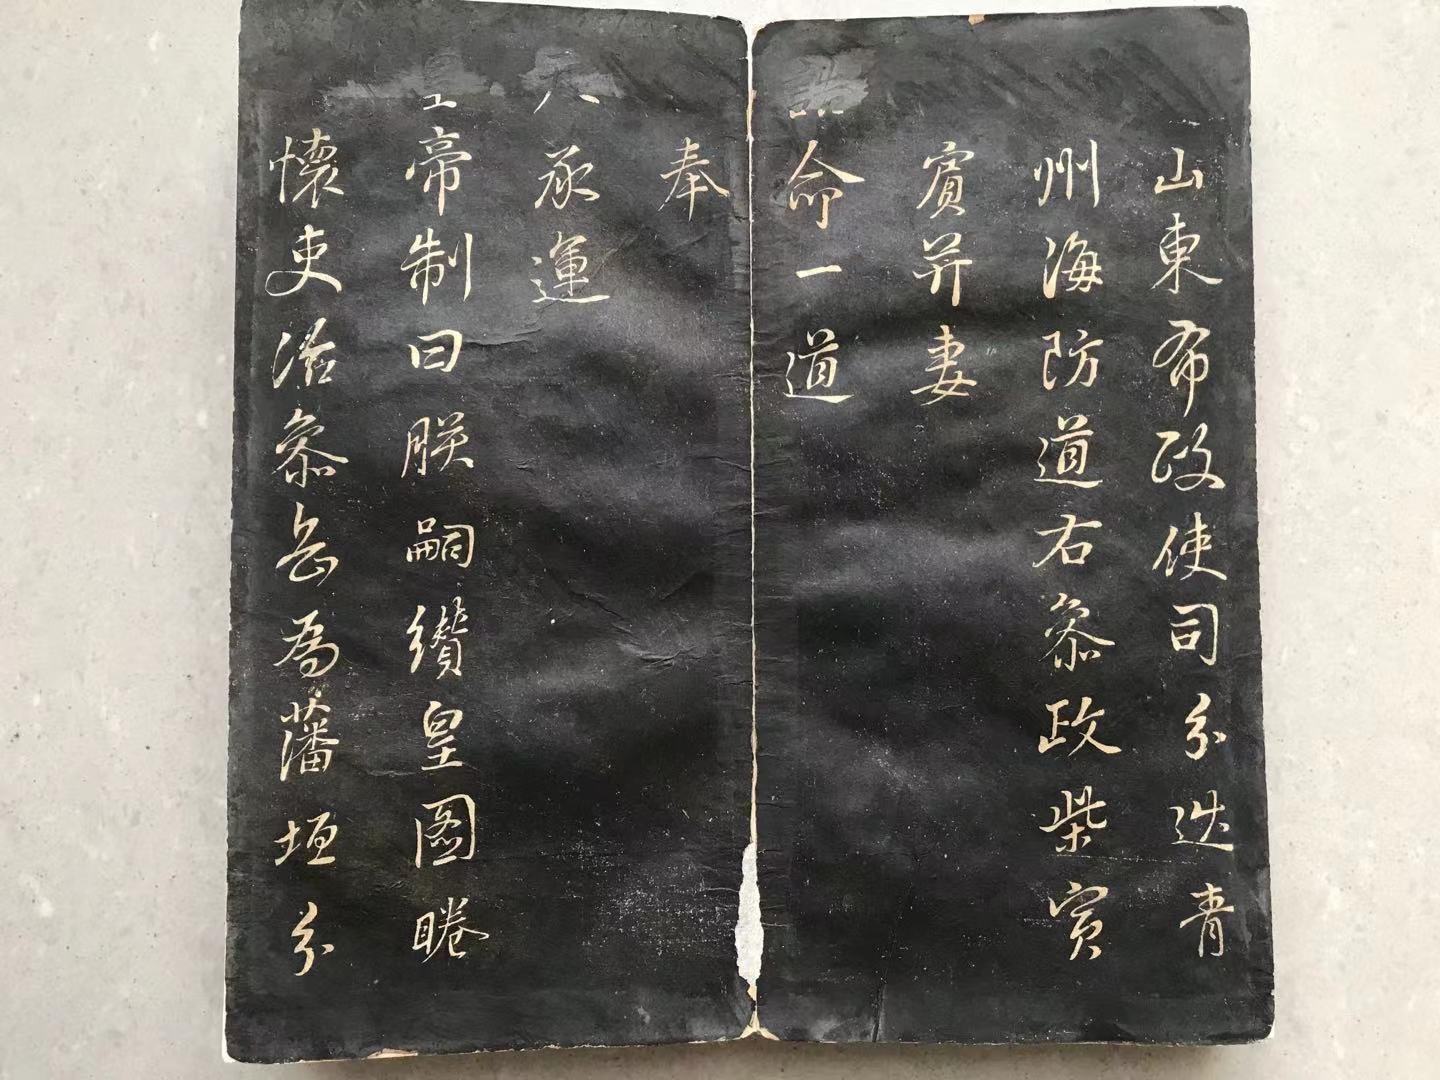 山東布政使司分巡青
州海防道右叅政柴寅
賔并妻
誥命一道
奉
天承運
皇帝制曰朕嗣纘皇圖睠
懷吏治叅岳為藩垣分